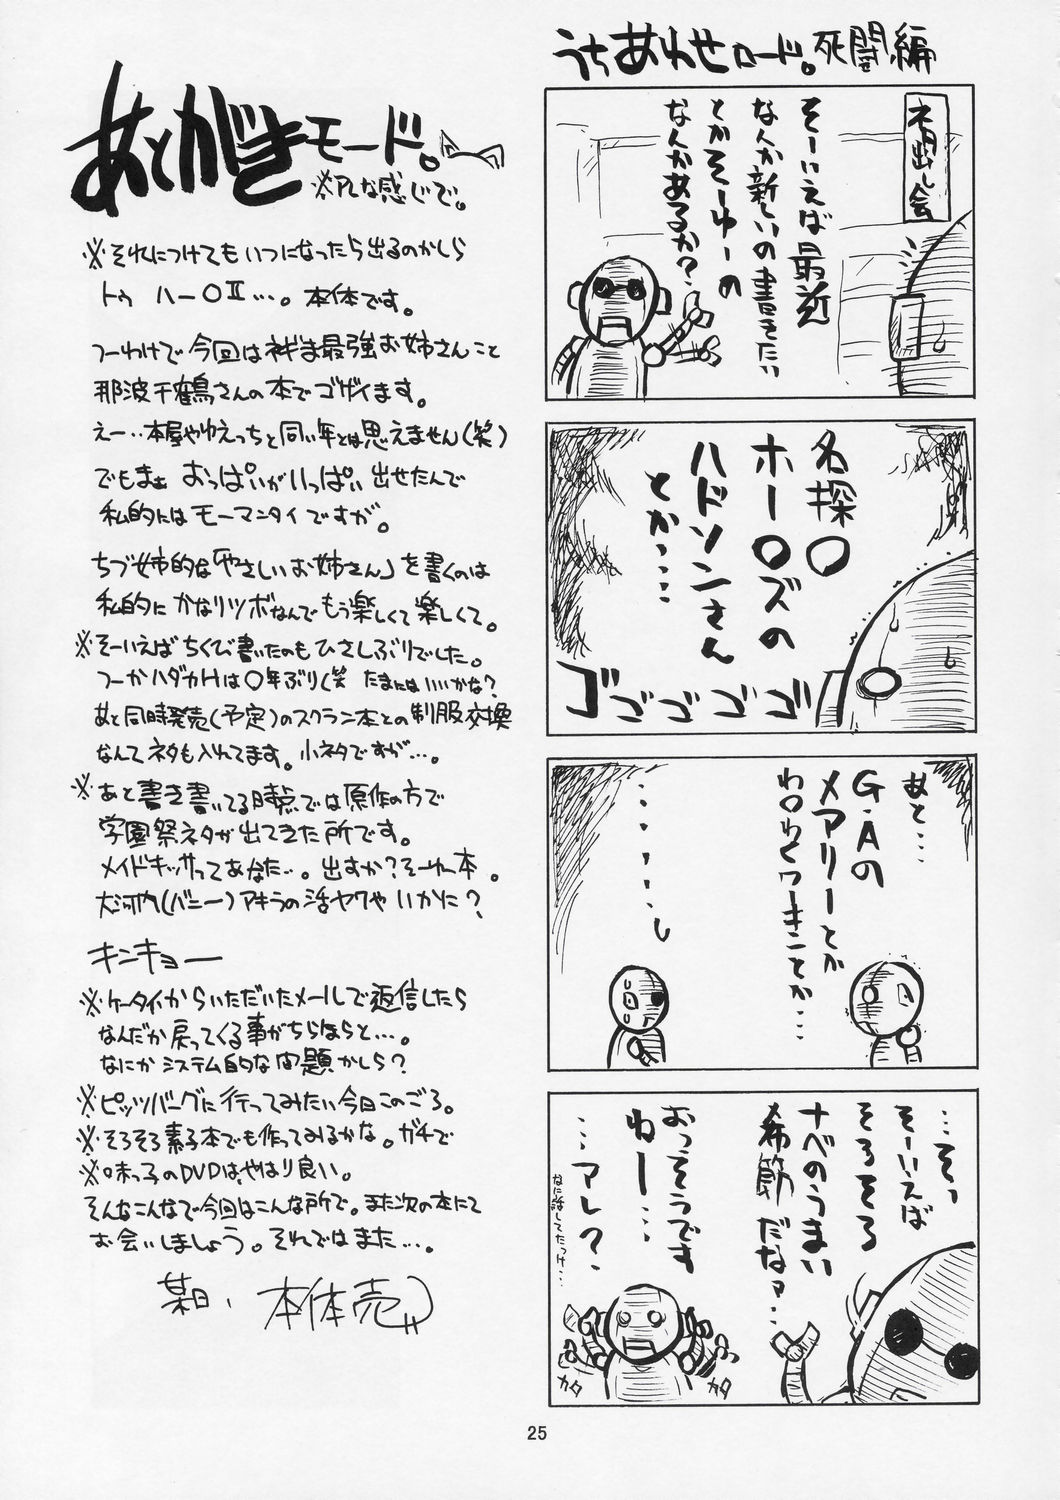 うちあわせロード。死闘編
ネタ出し会
そーいえば最近
なんか新しいの書きたい
とかそーゆーの
なんかあるか？
名探○
ホー○ズの
ハドソンさん
とか…
ゴゴゴゴゴ
あと…
G・Aの
メアリーとか
・・・・・・し
…そっ
そーいえば
そろそろ
ナベのうまい
季節だなァ…
おっそうです
ねー…
…アレ？
なに話してたっけ…
カタ
カタ
あとがきモード。
※アレな感じで。
※それにつけてもいつになったら出るのかしら
トゥ ハー○Ⅱ…。本体です。
つーわけで今回はネギま最強お姉さんこと
那波千鶴さんの本でゴザイます。
えー‥本屋やゆえっちと同い年とは思えません(笑)
でもまぁ おっぱいがいっぱい出せたんで
私的にはモーマンタイですが。
ちづ姉的な「やさしいお姉さん」を書くのは
私的にかなりツボなんでもう楽しくて楽しくて。
※そーいえばちくび書いたのもひさしぶりでした。
つーかハダカHは○年ぶり(笑 たまにはいいかな？
あと同時発売(予定)のスクラン本との制服交換
なんてネタも入れてます。小ネタですが…。
※あと書き書いてる時点では原作の方で
学園祭ネタが出てきた所です。
メイドキッサってあなた…。出すか？そーゆー本。
大河内(バニー)アキラの活ヤクやいかに？
キンキョー
※ケータイからいただいたメールで返信したら
なんだか戻ってくる事がちらほらと…。
なにかシステム的な問題かしら？
※ピッツバーグに行ってみたい今日このごろ。
※そろそろ素子本でも作ってみるかな。ガチで
※味っ子のDVDは、やはり良い。
そんなこんなで今回はこんな所で。また次の本にて
お会いしましょう。それではまた…。
某日、本体売
25